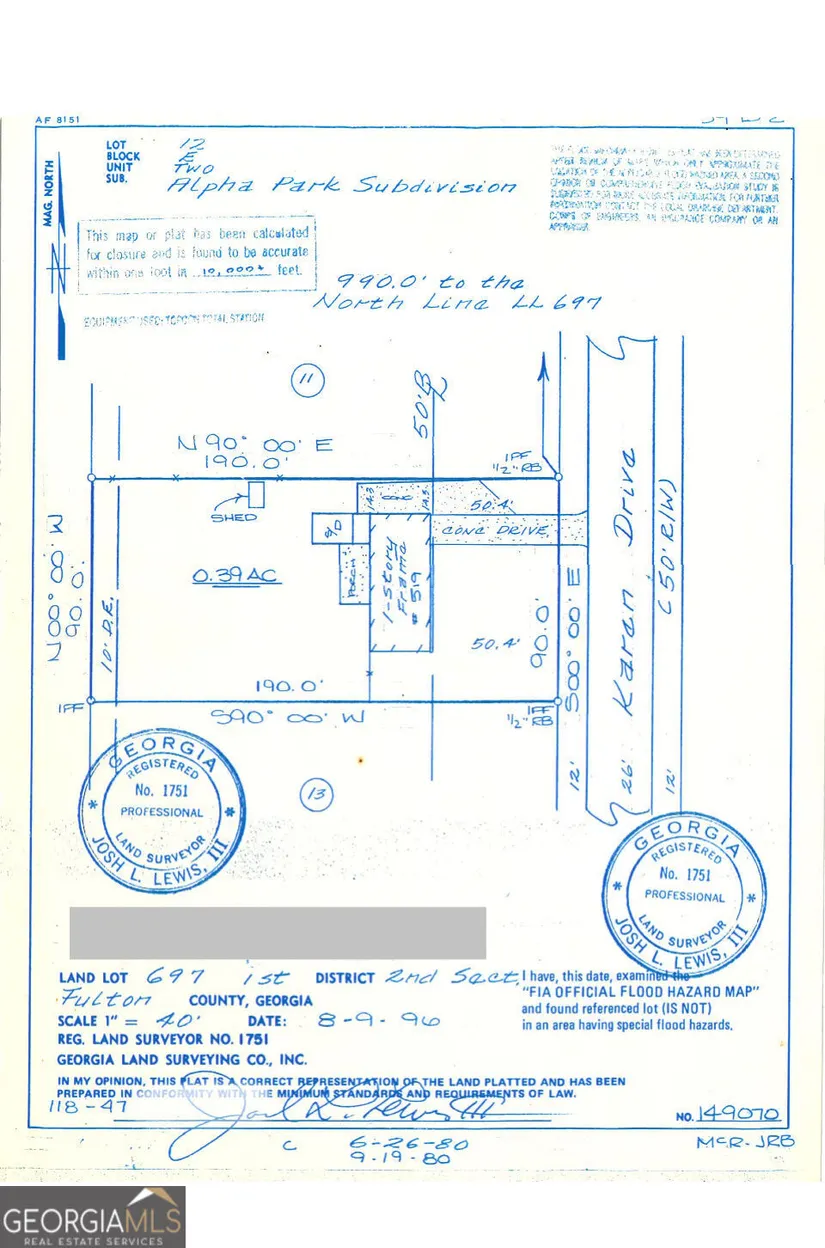 AF 8151
MAG. NORTH
LOT 12
BLOCK E
UNIT TWO
SUB. Alpha Park Subdivision
This map or plat has been calculated
for closure and is found to be accurate
within one foot in 10,000+ feet.
EQUIPMENT USED: TOPCON TOTAL STATION
990.0' to the
North Line LL 697
11
50' BL
N 90° 00' E
190.0'
IPF
1/2" RB
SHED
CONC
14.3
14.5
50.4'
S/D
CONC DRIVE
PORCH
1-Story
Frame
# 519
0.39 AC
N00° 00' W
90.0'
10' D.E.
50.4'
90.0'
S00° 00' E
Karen Drive
(50' R/W)
190.0'
IPF
S90° 00' W
IPF
1/2" RB
12'
26'
12'
13
GEORGIA
REGISTERED
No. 1751
PROFESSIONAL
LAND SURVEYOR
JOSH L. LEWIS, III
GEORGIA
REGISTERED
No. 1751
PROFESSIONAL
LAND SURVEYOR
JOSH L. LEWIS, III
LAND LOT 697 1st DISTRICT 2nd Sect.
Fulton COUNTY, GEORGIA
SCALE 1" = 40' DATE: 8-9-96
REG. LAND SURVEYOR NO. 1751
GEORGIA LAND SURVEYING CO., INC.
I have, this date, examined the
"FIA OFFICIAL FLOOD HAZARD MAP"
and found referenced lot (IS NOT)
in an area having special flood hazards.
IN MY OPINION, THIS PLAT IS A CORRECT REPRESENTATION OF THE LAND PLATTED AND HAS BEEN
PREPARED IN CONFORMITY WITH THE MINIMUM STANDARDS AND REQUIREMENTS OF LAW.
118-47
Josh L. Lewis III
NO. 149070
C 6-26-80
9-19-80
McR-JRB
GEORGIAMLS
REAL ESTATE SERVICES